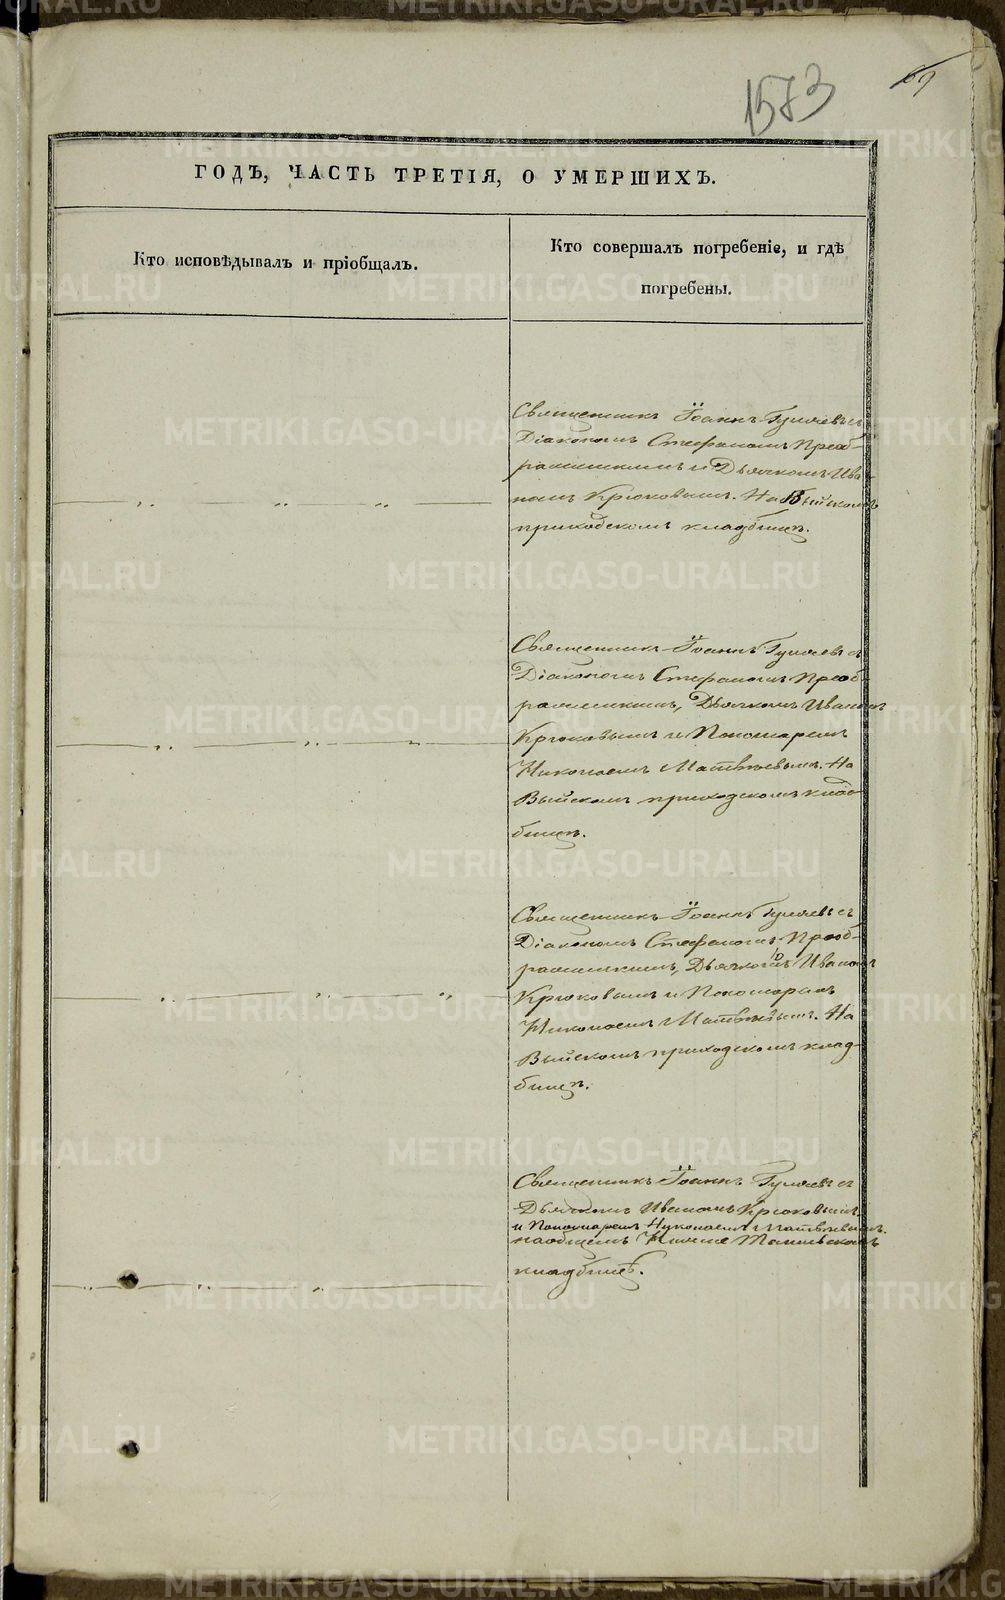 1573
69
ГОДЪ, ЧАСТЬ ТРЕТІЯ, О УМЕРШИХЪ.
Кто исповѣдывалъ и пріобщалъ.
Кто совершалъ погребеніе, и гдѣ
погребены.
Священникъ Іоаннъ Гуляевъ съ
Діакономъ Стефаномъ Преоб-
раженскимъ и Дьячкомъ Ива-
номъ Крюковымъ. На Выйскомъ
приходскомъ кладбищѣ.
Священникъ Іоаннъ Гуляевъ съ
Діакономъ Стефаномъ Преоб-
раженскимъ, Дьячкомъ Иваномъ
Крюковымъ и Пономаремъ
Николаемъ Матвѣевымъ. На
Выйскомъ приходскомъ клад-
бищѣ.
Священникъ Іоаннъ Гуляевъ съ
Діакономъ Стефаномъ Преоб-
раженскимъ, Дьячкомъ Иваномъ
Крюковымъ и Пономаремъ
Николаемъ Матвѣевымъ. На
Выйскомъ приходскомъ клад-
бищѣ.
Священникъ Іоаннъ Гуляевъ съ
Дьячкомъ Иваномъ Крюковымъ
и Пономаремъ Николаемъ Матвѣевымъ.
на общемъ Нижне Тагильскомъ
кладбищѣ.
METRIKI.GASO-URAL.RU